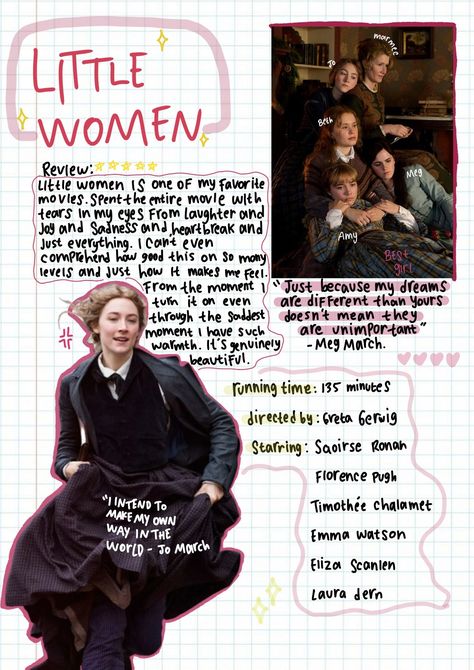 LITTLE
WOMEN
Jo
marmee
Beth
Meg
Amy
BEST
girl
Review:
Little women IS one of my favorite
movies. Spent the entire movie with
tears in my eyes from laughter and
joy and Sadness and heartbreak and
just everything. I can't even
comprehend how good this on so many
levels and just how it makes me feel.
From the moment I
turn it on even
through the saddest
moment I have such
warmth. It's genuinely
beautiful.
"Just because my dreams
are different than yours
doesn't mean they
are unimportant"
- Meg March.
running time: 135 minutes
directed by: Greta Gerwig
Starring: Saoirse Ronan
Florence Pugh
Timothée Chalamet
Emma Watson
Eliza Scanlen
Laura dern
"I INTEND TO
MAKE MY OWN
WAY IN THE
WORLD - Jo March